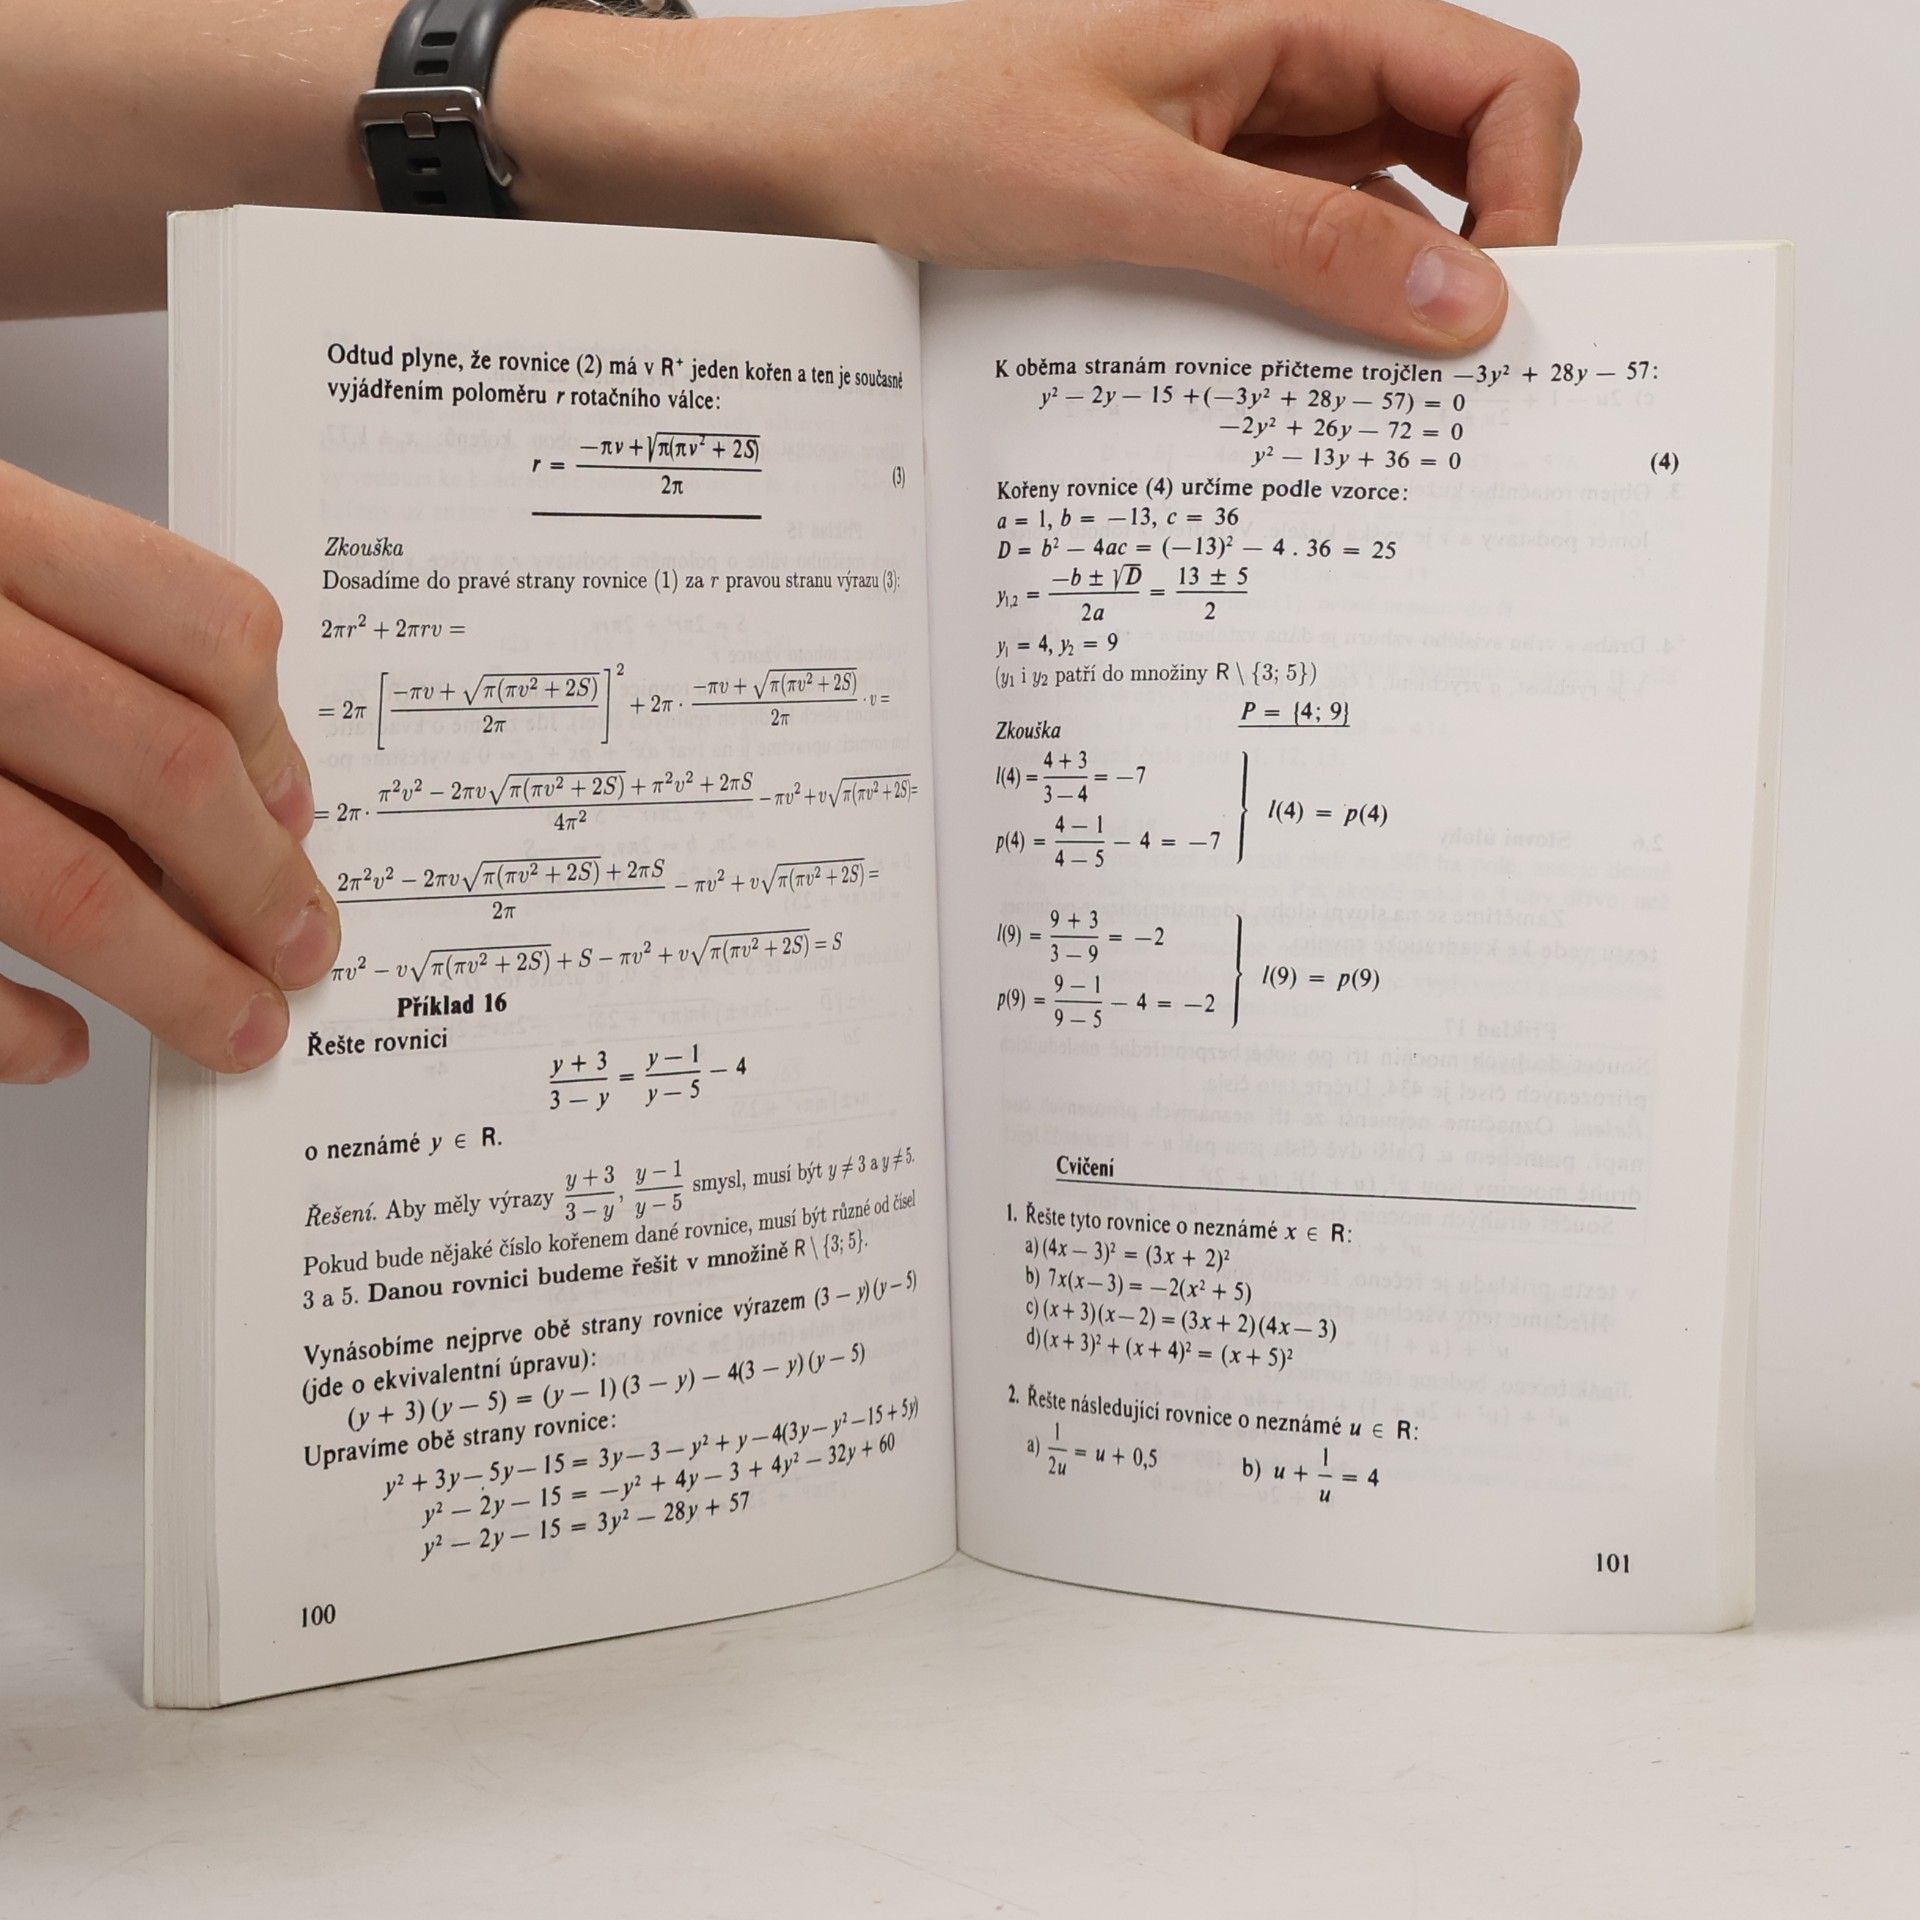 Odtud plyne, že rovnice (2) má v R⁺ jeden kořen a ten je současně
vyjádřením poloměru r rotačního válce:
r = (−πv + √(π(πv² + 2S))) / 2π (3)
Zkouška
Dosadíme do pravé strany rovnice (1) za r pravou stranu výrazu (3):
2πr² + 2πrv =
= 2π [(−πv + √(π(πv² + 2S))) / 2π]² + 2π · (−πv + √(π(πv² + 2S))) / 2π · v =
= 2π · (π²v² − 2πv√(π(πv² + 2S)) + π²v² + 2πS) / 4π² − πv² + v√(π(πv² + 2S)) =
(2π²v² − 2πv√(π(πv² + 2S)) + 2πS) / 2π − πv² + v√(π(πv² + 2S)) =
πv² − v√(π(πv² + 2S)) + S − πv² + v√(π(πv² + 2S)) = S
Příklad 16
Řešte rovnici
(y + 3) / (3 − y) = (y − 1) / (y − 5) − 4
o neznámé y ∈ R.
Řešení. Aby měly výrazy (y + 3) / (3 − y), (y − 1) / (y − 5) smysl, musí být y ≠ 3 a y ≠ 5.
Pokud bude nějaké číslo kořenem dané rovnice, musí být různé od čísel
3 a 5. Danou rovnici budeme řešit v množině R \ {3; 5}.
Vynásobíme nejprve obě strany rovnice výrazem (3 − y)(y − 5)
(jde o ekvivalentní úpravu):
(y + 3)(y − 5) = (y − 1)(3 − y) − 4(3 − y)(y − 5)
Upravíme obě strany rovnice:
y² + 3y − 5y − 15 = 3y − 3 − y² + y − 4(3y − y² − 15 + 5y)
y² − 2y − 15 = −y² + 4y − 3 + 4y² − 32y + 60
y² − 2y − 15 = 3y² − 28y + 57
100
K oběma stranám rovnice přičteme trojčlen −3y² + 28y − 57:
y² − 2y − 15 + (−3y² + 28y − 57) = 0
−2y² + 26y − 72 = 0
y² − 13y + 36 = 0 (4)
Kořeny rovnice (4) určíme podle vzorce:
a = 1, b = −13, c = 36
D = b² − 4ac = (−13)² − 4 . 36 = 25
y₁,₂ = (−b ± √D) / 2a = (13 ± 5) / 2
y₁ = 4, y₂ = 9
(y₁ i y₂ patří do množiny R \ {3; 5})
P = {4; 9}
Zkouška
l(4) = (4 + 3) / (3 − 4) = −7
p(4) = (4 − 1) / (4 − 5) − 4 = −7
l(4) = p(4)
l(9) = (9 + 3) / (3 − 9) = −2
p(9) = (9 − 1) / (9 − 5) − 4 = −2
l(9) = p(9)
Cvičení
1. Řešte tyto rovnice o neznámé x ∈ R:
a) (4x − 3)² = (3x + 2)²
b) 7x(x − 3) = −2(x² + 5)
c) (x + 3)(x − 2) = (3x + 2)(4x − 3)
d) (x + 3)² + (x + 4)² = (x + 5)²
2. Řešte následující rovnice o neznámé u ∈ R:
a) 1 / 2u = u + 0,5 b) u + 1 / u = 4
101